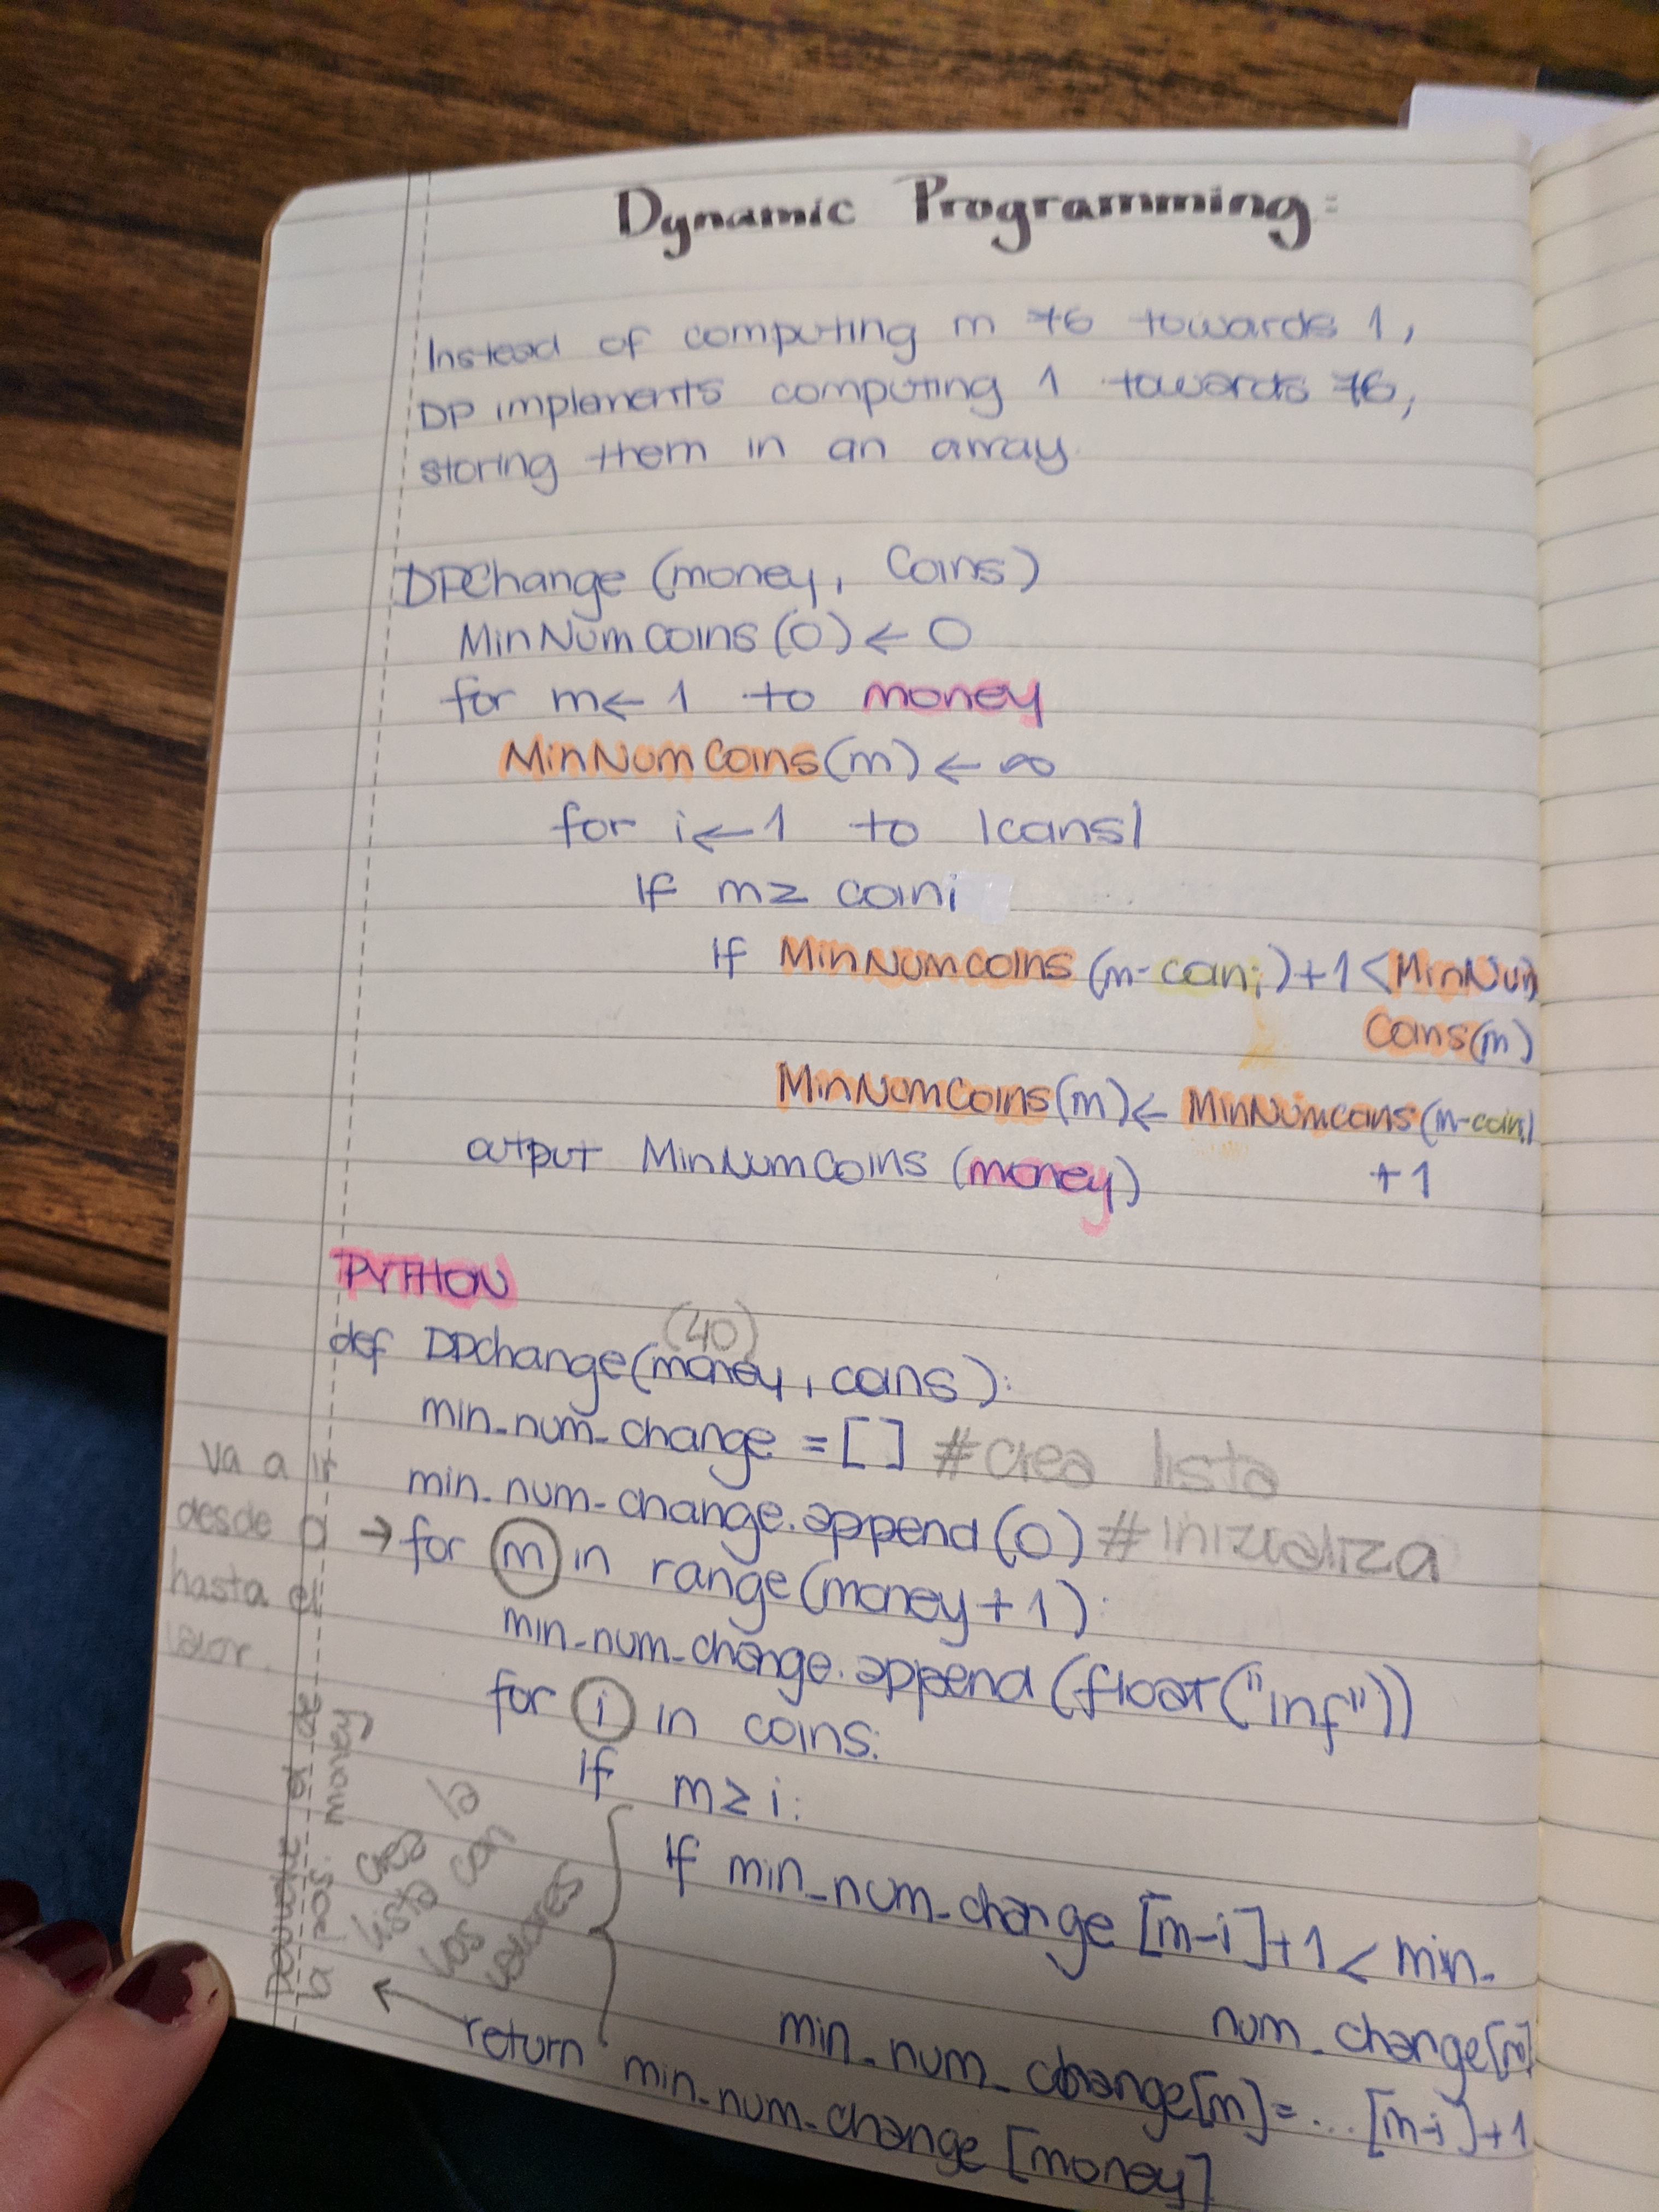 Dynamic Programming:
Instead of computing m 76 towards 1,
DP implements computing 1 towards 76,
storing them in an array.
DPChange (money, Coins)
MinNumCoins(0) ← 0
for m ← 1 to money
MinNumCoins(m) ← ∞
for i ← 1 to |coins|
If m ≥ coin i
If MinNumCoins (m-coin i) +1 < MinNum
Coins(m)
MinNumCoins(m) ← MinNumCoins(m-coin i)
+1
output MinNumCoins (money)
PYTHON
(40)
def DPchange(money, coins):
min_num_change = [] #crea lista
min_num_change.append(0) #inizializa
va a ir
desde 0
hasta el
valor.
→ for m in range(money+1):
min_num_change.append(float("inf"))
for i in coins:
if m ≥ i:
If min_num_change [m-i]+1 < min_
num_change[m]
min_num_change[m] = ... [m-i]+1
crea la
lista con
los
valores
return min_num_change [money]
Devuelve el de
la pos. money